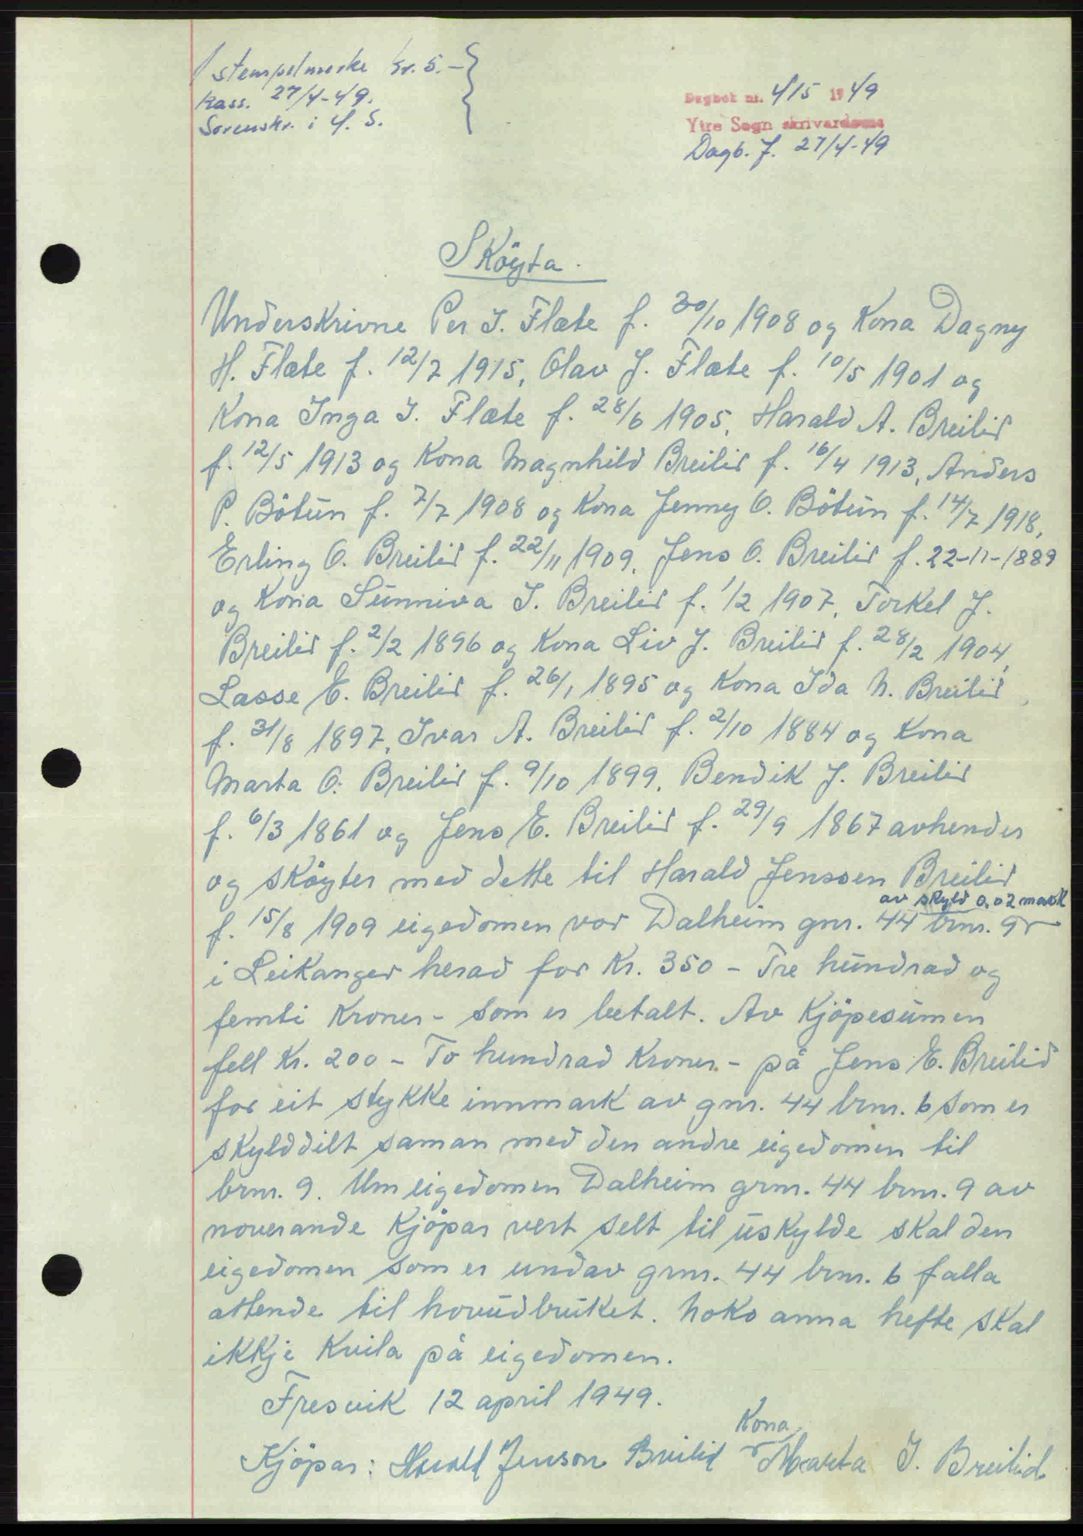 1 stempelmerke kr. 5.-
kass. 27/4-49.
Sorenskr. i Y. S.
Dagbok nr. 415 1949
Ytre Sogn skrivardøme
Dagb. f. 27/4-49
Sköyta.
Underskrivne Per I. Flæte f. 30/10 1908 og Kona Dagny
H. Flæte f. 12/7 1915, Olav J. Flæte f. 10/5 1901 og
Kona Inga I. Flæte f. 28/6 1905, Harald A. Breilid
f. 12/5 1913 og Kona Magnhild Breilid f. 16/4 1913, Anders
P. Bötun f. 7/7 1908 og Kona Jenny O. Bötun f. 14/7 1918,
Erling O. Breilid f. 22/11 1909, Jens O. Breilid f. 22-11-1889
og Kona Sunniva I. Breilid f. 1/2 1907, Torkel J.
Breilid f. 2/2 1896 og Kona Liv J. Breilid f. 28/2 1904,
Lasse E. Breilid f. 26/1 1895 og Kona Ida N. Breilid
f. 31/8 1897, Ivar A. Breilid f. 2/10 1884 og Kona
Marta O. Breilid f. 9/10 1899, Bendik J. Breilid
f. 6/3 1861 og Jens E. Breilid f. 29/9 1867 avhender
og sköyter med dette til Harald Jenssen Breilid
av skyld 0,02 mark
f. 15/8 1909 eigedomen vor Dalheim gnr. 44 brnr. 9
i Leikanger herad for Kr. 350 - Tre hundrad og
femti Kroner - som er betalt. Av Kjöpesumen
fell Kr. 200 - To hundrad Kroner - på Jens E. Breilid
for eit stykke innmark av gnr. 44 brnr. 6 som er
skylddilt saman med den andre eigedomen til
brnr. 9. Um eigedomen Dalheim grnr. 44 brnr. 9 av
noverande Kjöpar vert selt til uskylde skal den
eigedomen som er undav grnr. 44 brnr. 6 falla
attende til hovudbruket. Noko anna hefte skal
ikkje Kvila på eigedomen.
Fresvik 12 april 1949.
Kona
Kjöpar: Harald Jenson Breilid Marta I. Breilid